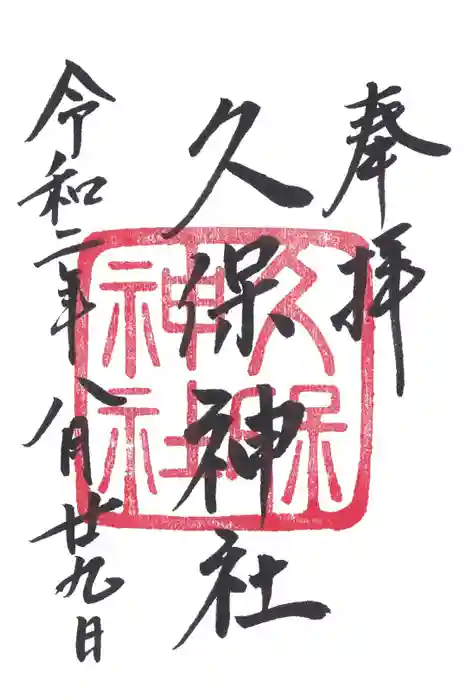 奉拝
久保神社
令和二年八月廿九日
久保
神社